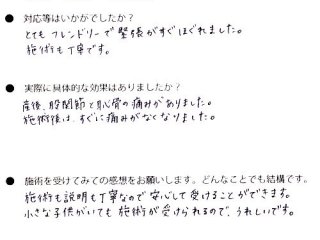 ● 対応等はいかがでしたか?
とてもフレンドリーで緊張がすぐほぐれました。
施術も丁寧です。
● 実際に具体的な効果はありましたか?
産後、股関節と恥骨の痛みがありました。
施術後は、すぐに痛みがなくなりました。
● 施術を受けてみての感想をお願いします。どんなことでも結構です。
施術も説明も丁寧なので安心して受けることができます。
小さな子供がいても施術が受けられるので、うれしいです。